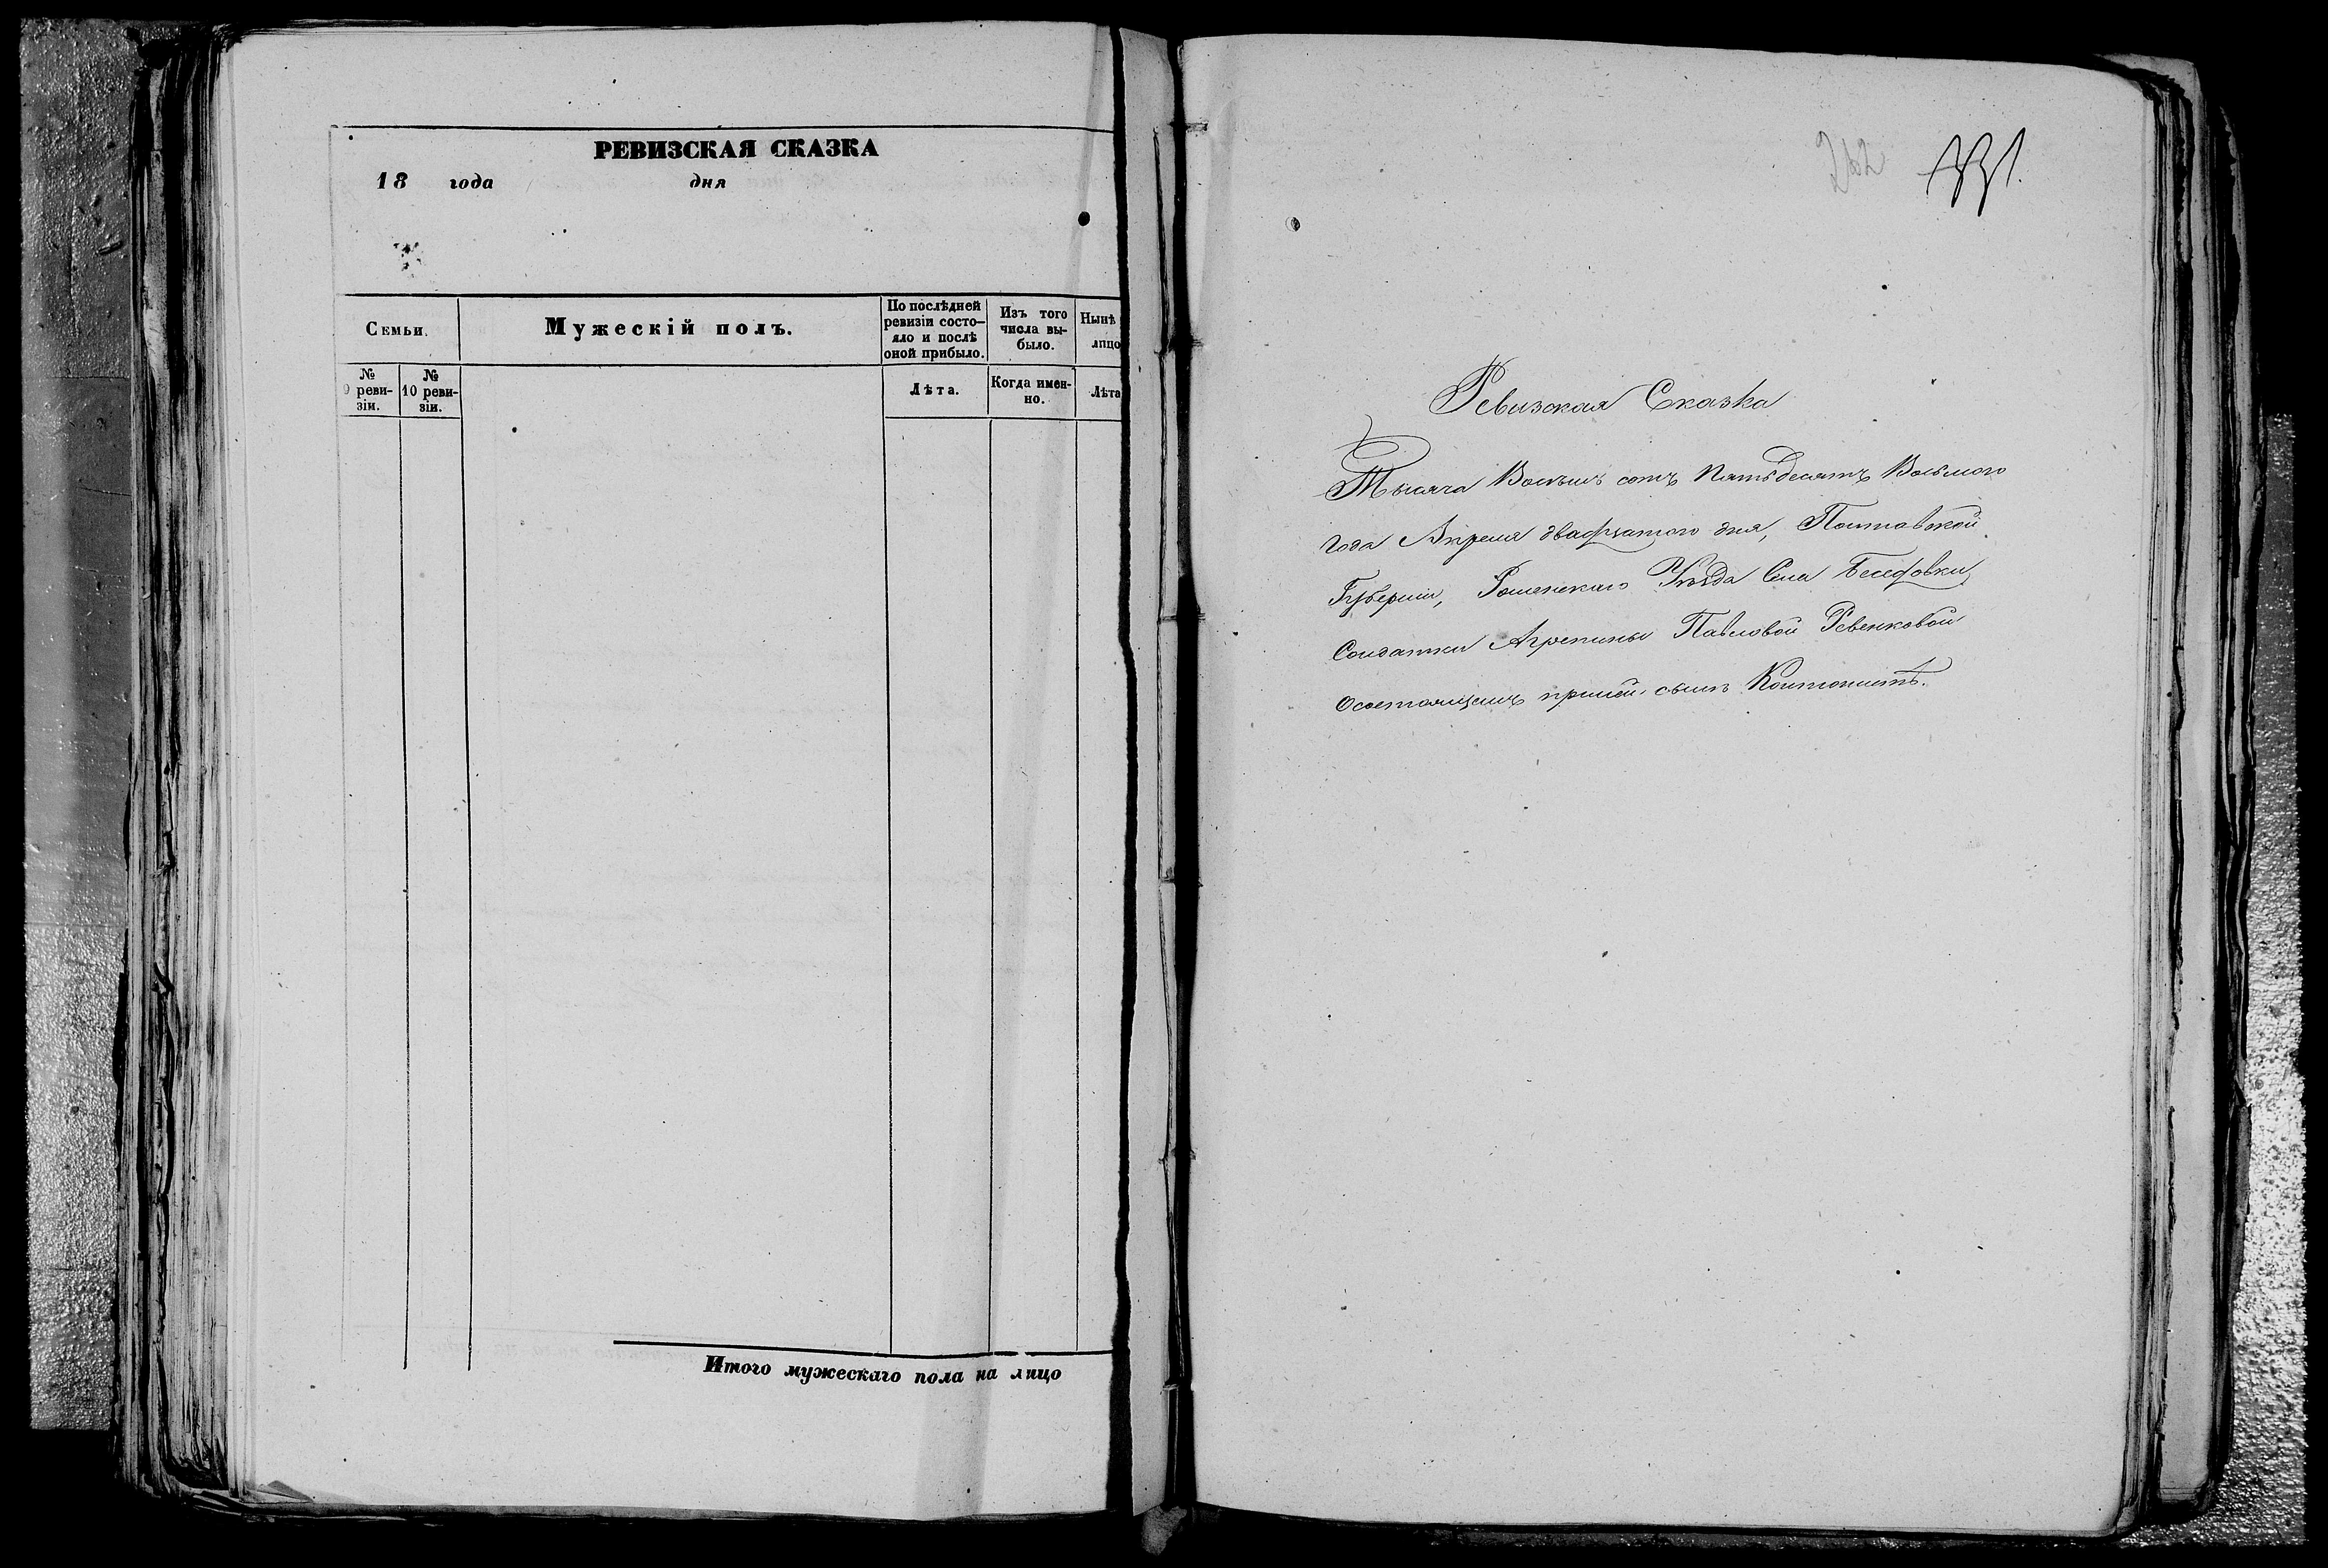 РЕВИЗСКАЯ СКАЗКА
18 года дня
Семьи.
Мужескій полъ.
По послѣдней
ревизіи состо-
яло и послѣ
оной прибыло.
Изъ того
числа вы-
было.
Нынѣ
лицо
№
9 реви-
зіи.
№
10 реви-
зіи.
Лѣта.
Когда имен-
но.
Лѣта
Итого мужескаго пола на лицо
262
Ревизская Сказка
Тысяча Восемь сотъ Пятьдесятъ Восьмого
года Апреля двадцатого дня, Полтавской
Губерніи, Роменскаго Уѣзда Села Беседовки
Солдатки Агрепины Павловой Ревенковой
О состоящемъ при ней сынѣ Кантонистѣ.